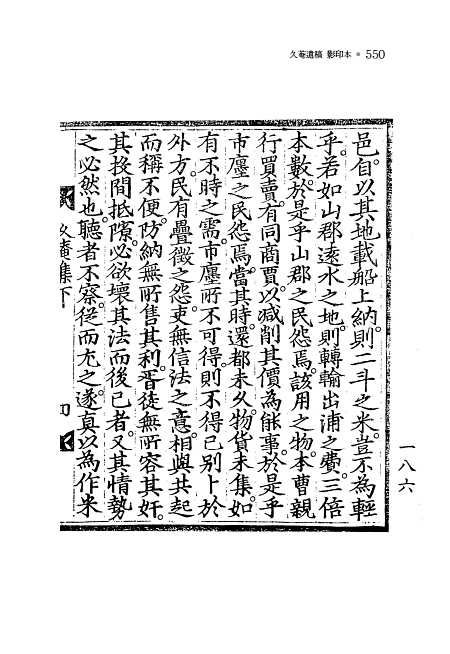 久菴遺稿 影印本 ● 550
邑。自以其地載船上納。則二斗之米。豈不為輕
乎。若如山郡遠水之地。則轉輸出浦之費。三倍
本數。於是乎山郡之民怨焉。該用之物。本曹親
行買賣。有同商賈。以减削其價為能事。於是乎
市廛之民怨焉。當其時。還都未久。物貨未集。如
有不時之需。市廛所不可得。則不得已別卜於
外方。民有疊徵之怨。吏無信法之意。相與共起
而稱不便。防納無所售其利。胥徒無所容其奸。
其投間抵隙。必欲壞其法而後已者。又其情勢
之必然也。聽者不察。從而尤之。遂真以為作米
久菴集下
一八六